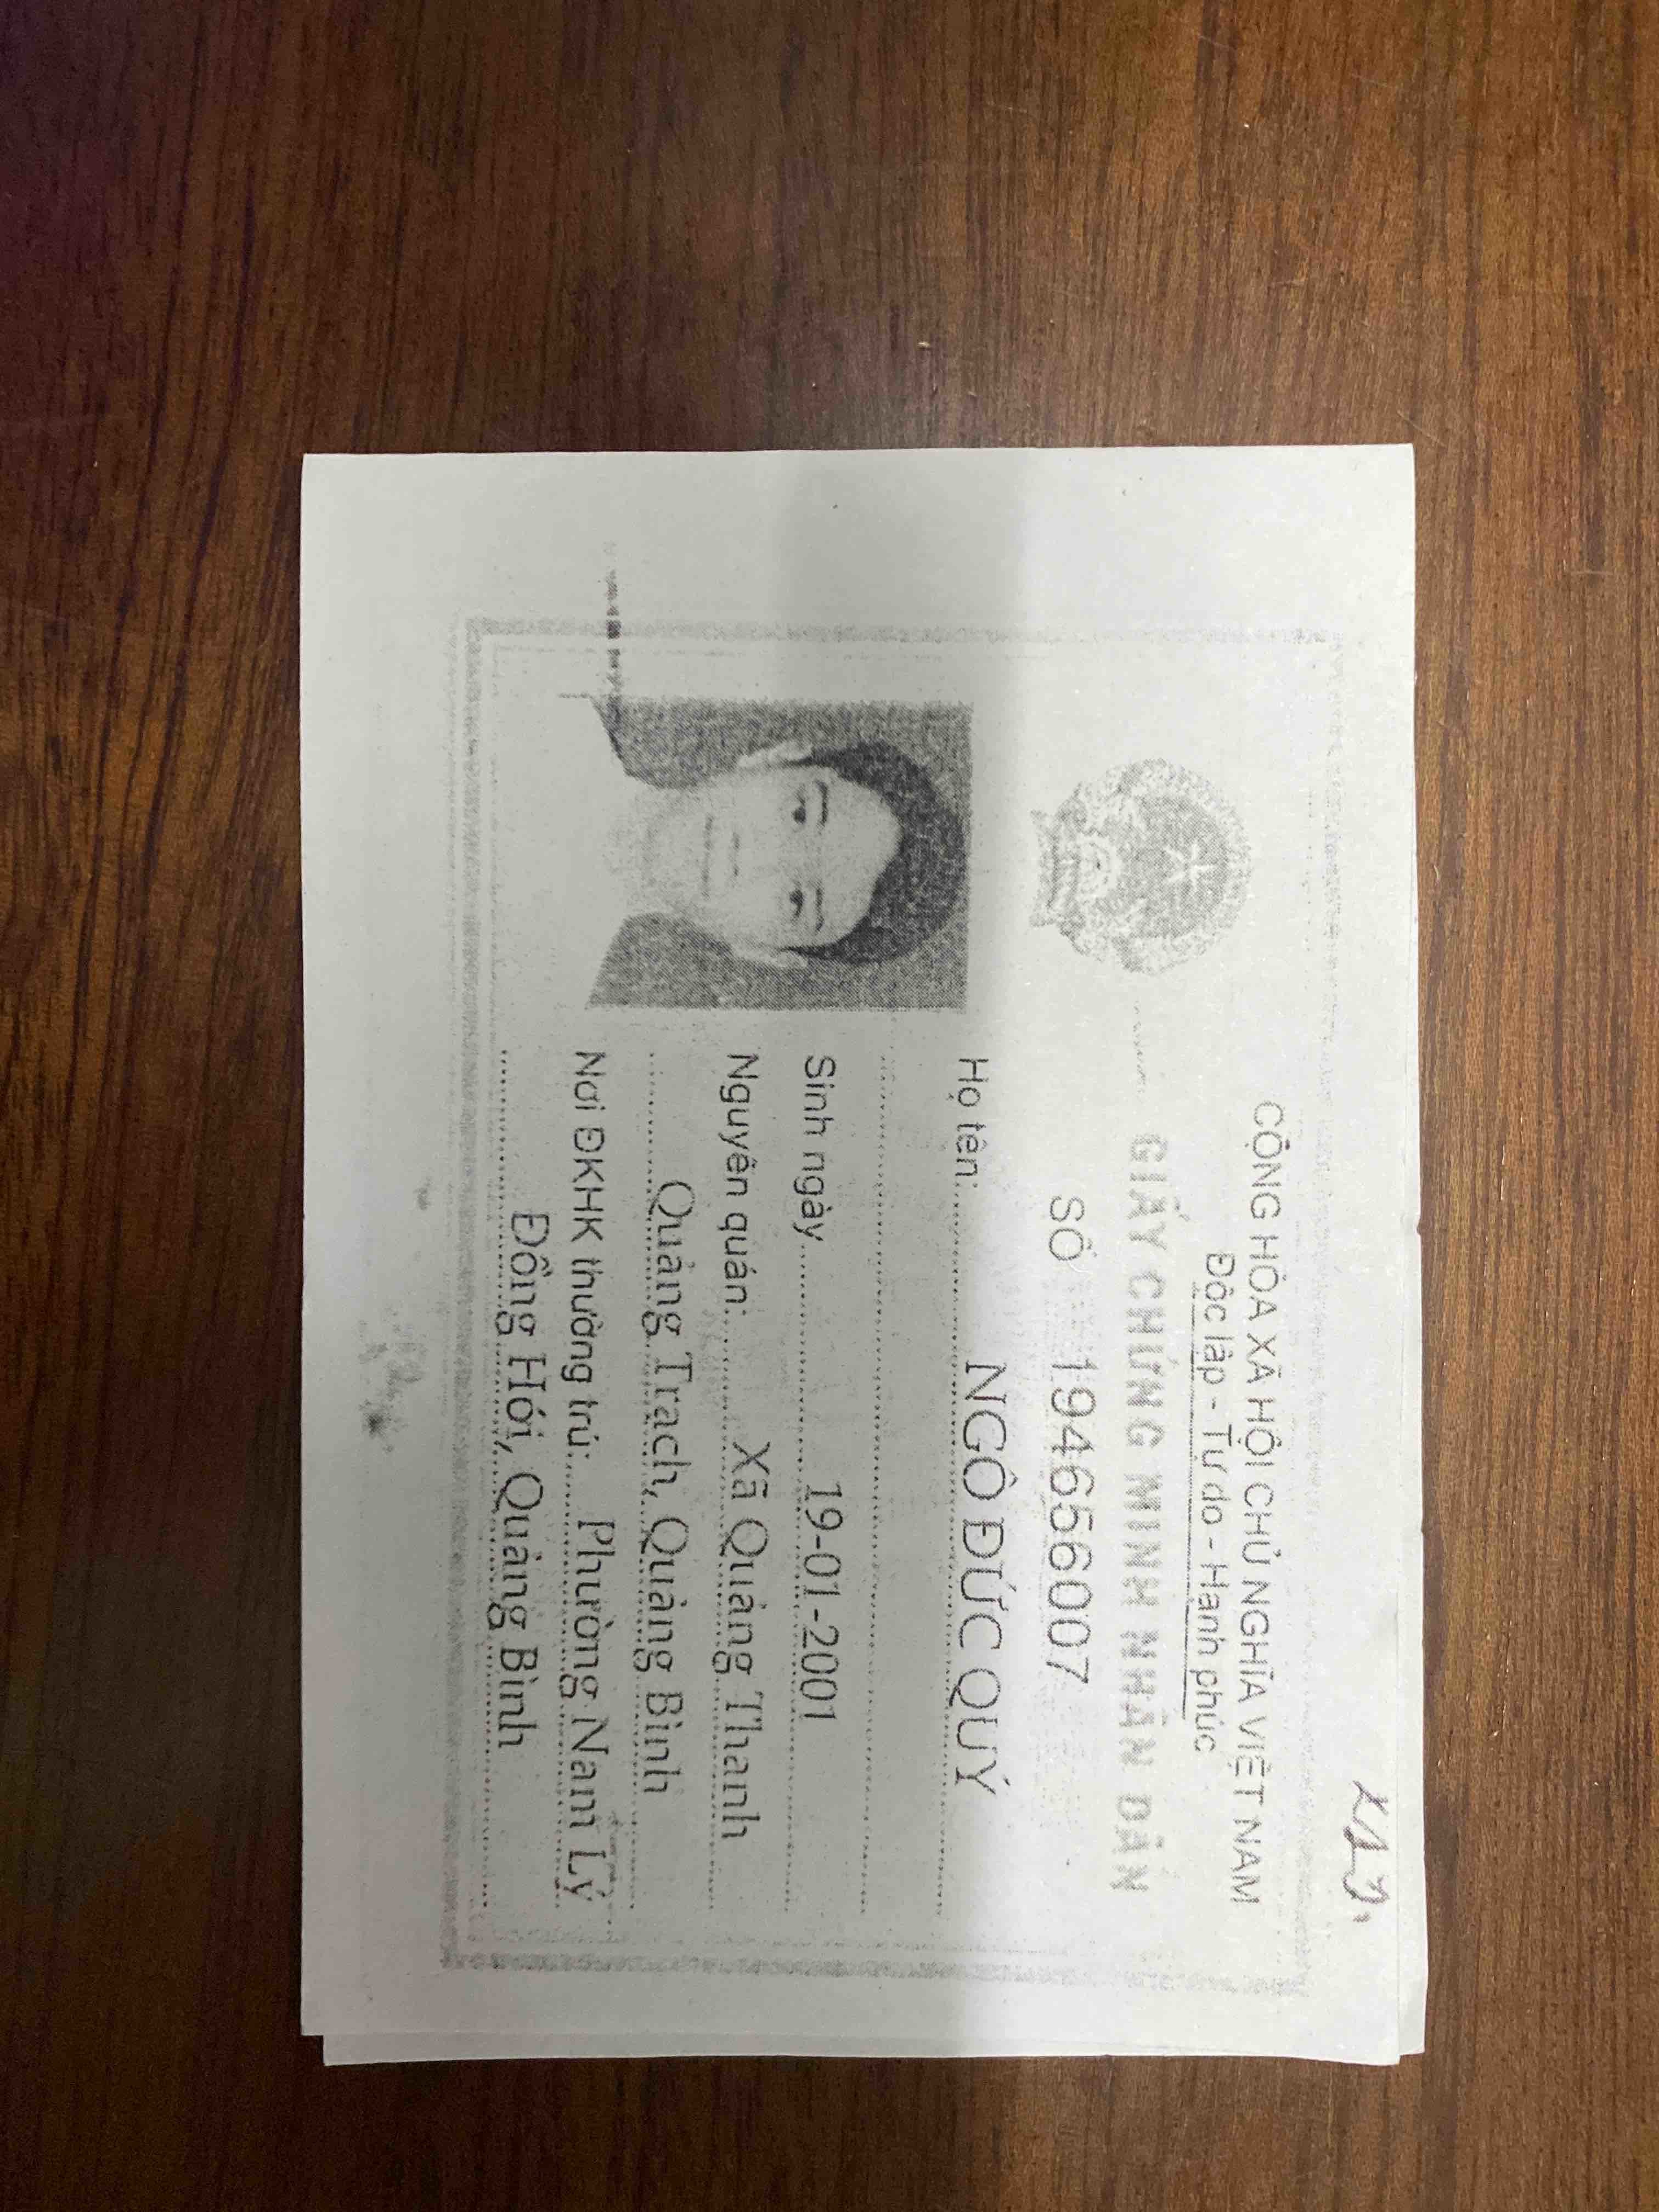 CỘNG HÒA XÃ HỘI CHỦ NGHĨA VIỆT NAM
Độc lập - Tự do - Hạnh phúc
GIẤY CHỨNG MINH NHÂN DÂN
SỐ 194656007
Họ tên: NGÔ ĐỨC QUÝ
Sinh ngày 19-01-2001
Nguyên quán: Xã Quảng Thanh
Quảng Trạch, Quảng Bình
Nơi ĐKHK thường trú: Phường Nam Lý
Đồng Hới, Quảng Bình